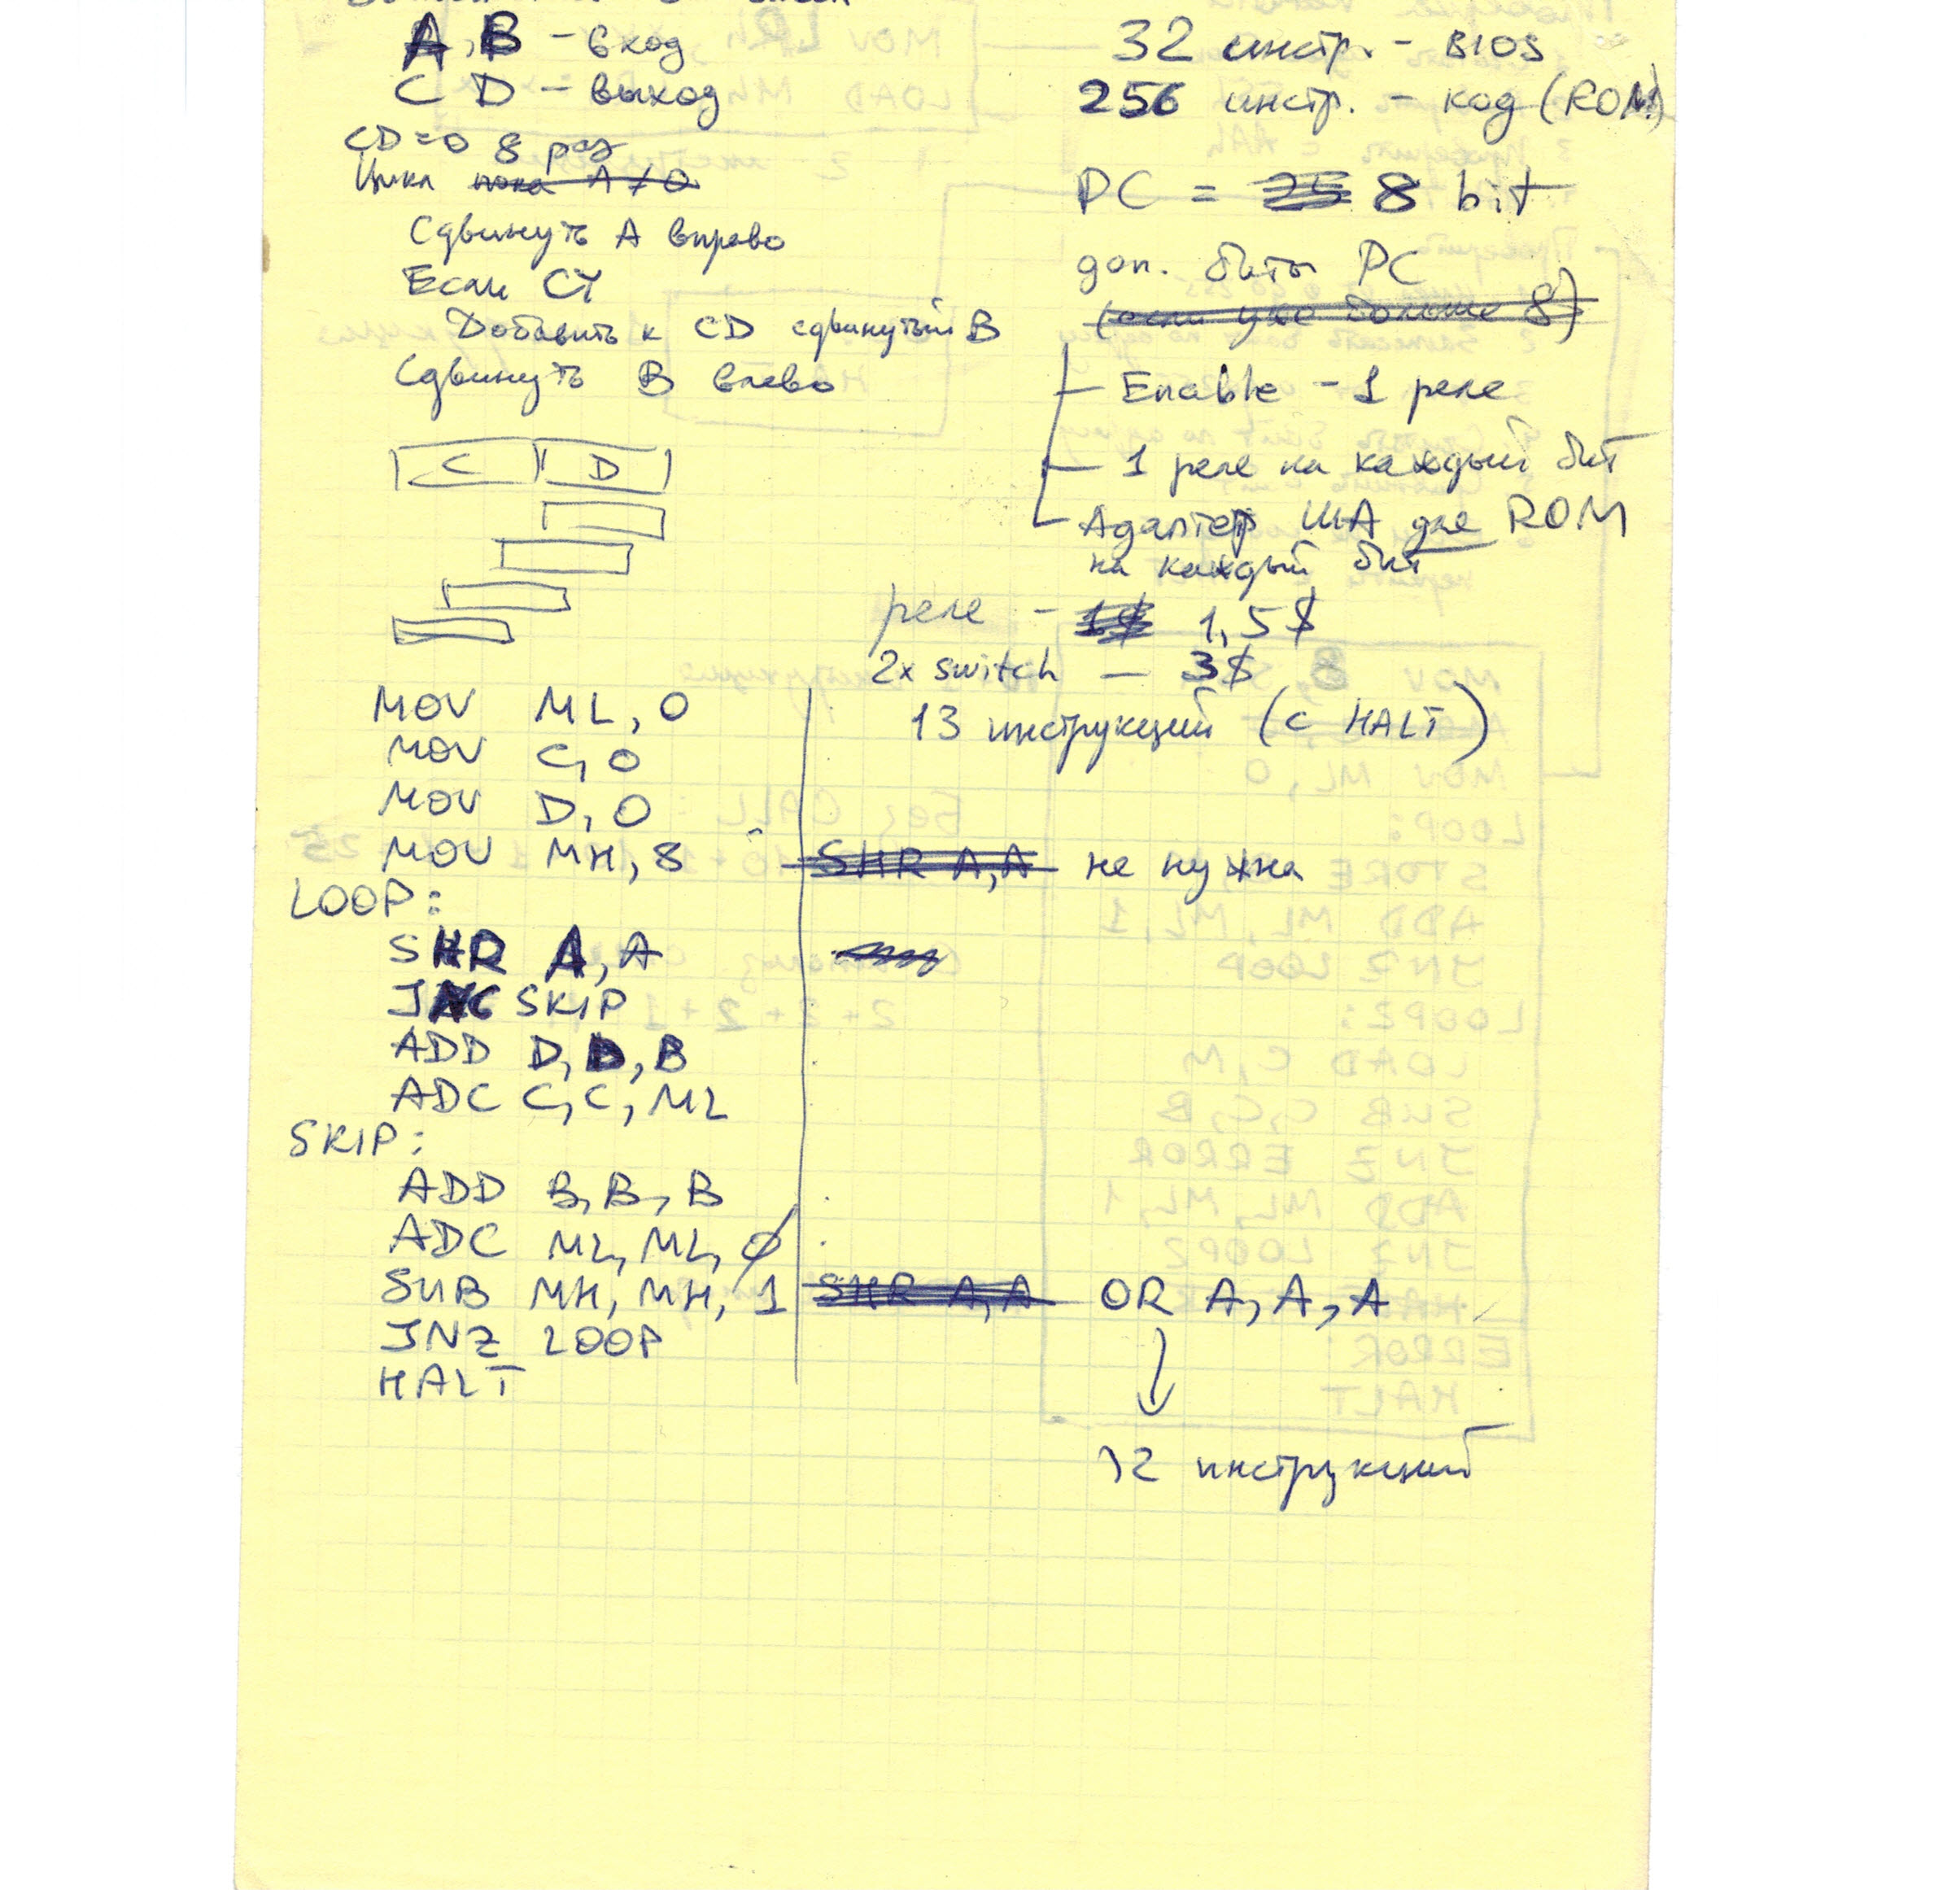 A, B – вход
C D – выход
CD=0 8 раз
Цикл пока A ≠ 0
Сдвинуть A вправо
Если CY
Добавить к CD сдвинутый B
Сдвинуть B влево
C D
MOV ML, 0
MOV C, 0
MOV D, 0
MOV MH, 8
LOOP:
SHR A, A
JNC SKIP
ADD D, D, B
ADC C, C, ML
SKIP:
ADD B, B, B
ADC ML, ML, 0
SUB MH, MH, 1
JNZ LOOP
HALT
32 инстр. – BIOS
256 инстр. – код (ROM)
PC = 25 8 bit
доп. биты PC
(если уже больше 8)
Enable – 1 реле
1 реле на каждый бит
Адаптер ША для ROM
на каждый бит
реле – 1$ 1,5$
2x switch — 3$
13 инструкций (с HALT)
SHR A, A не нужна
SHR A, A OR A, A, A
12 инструкций